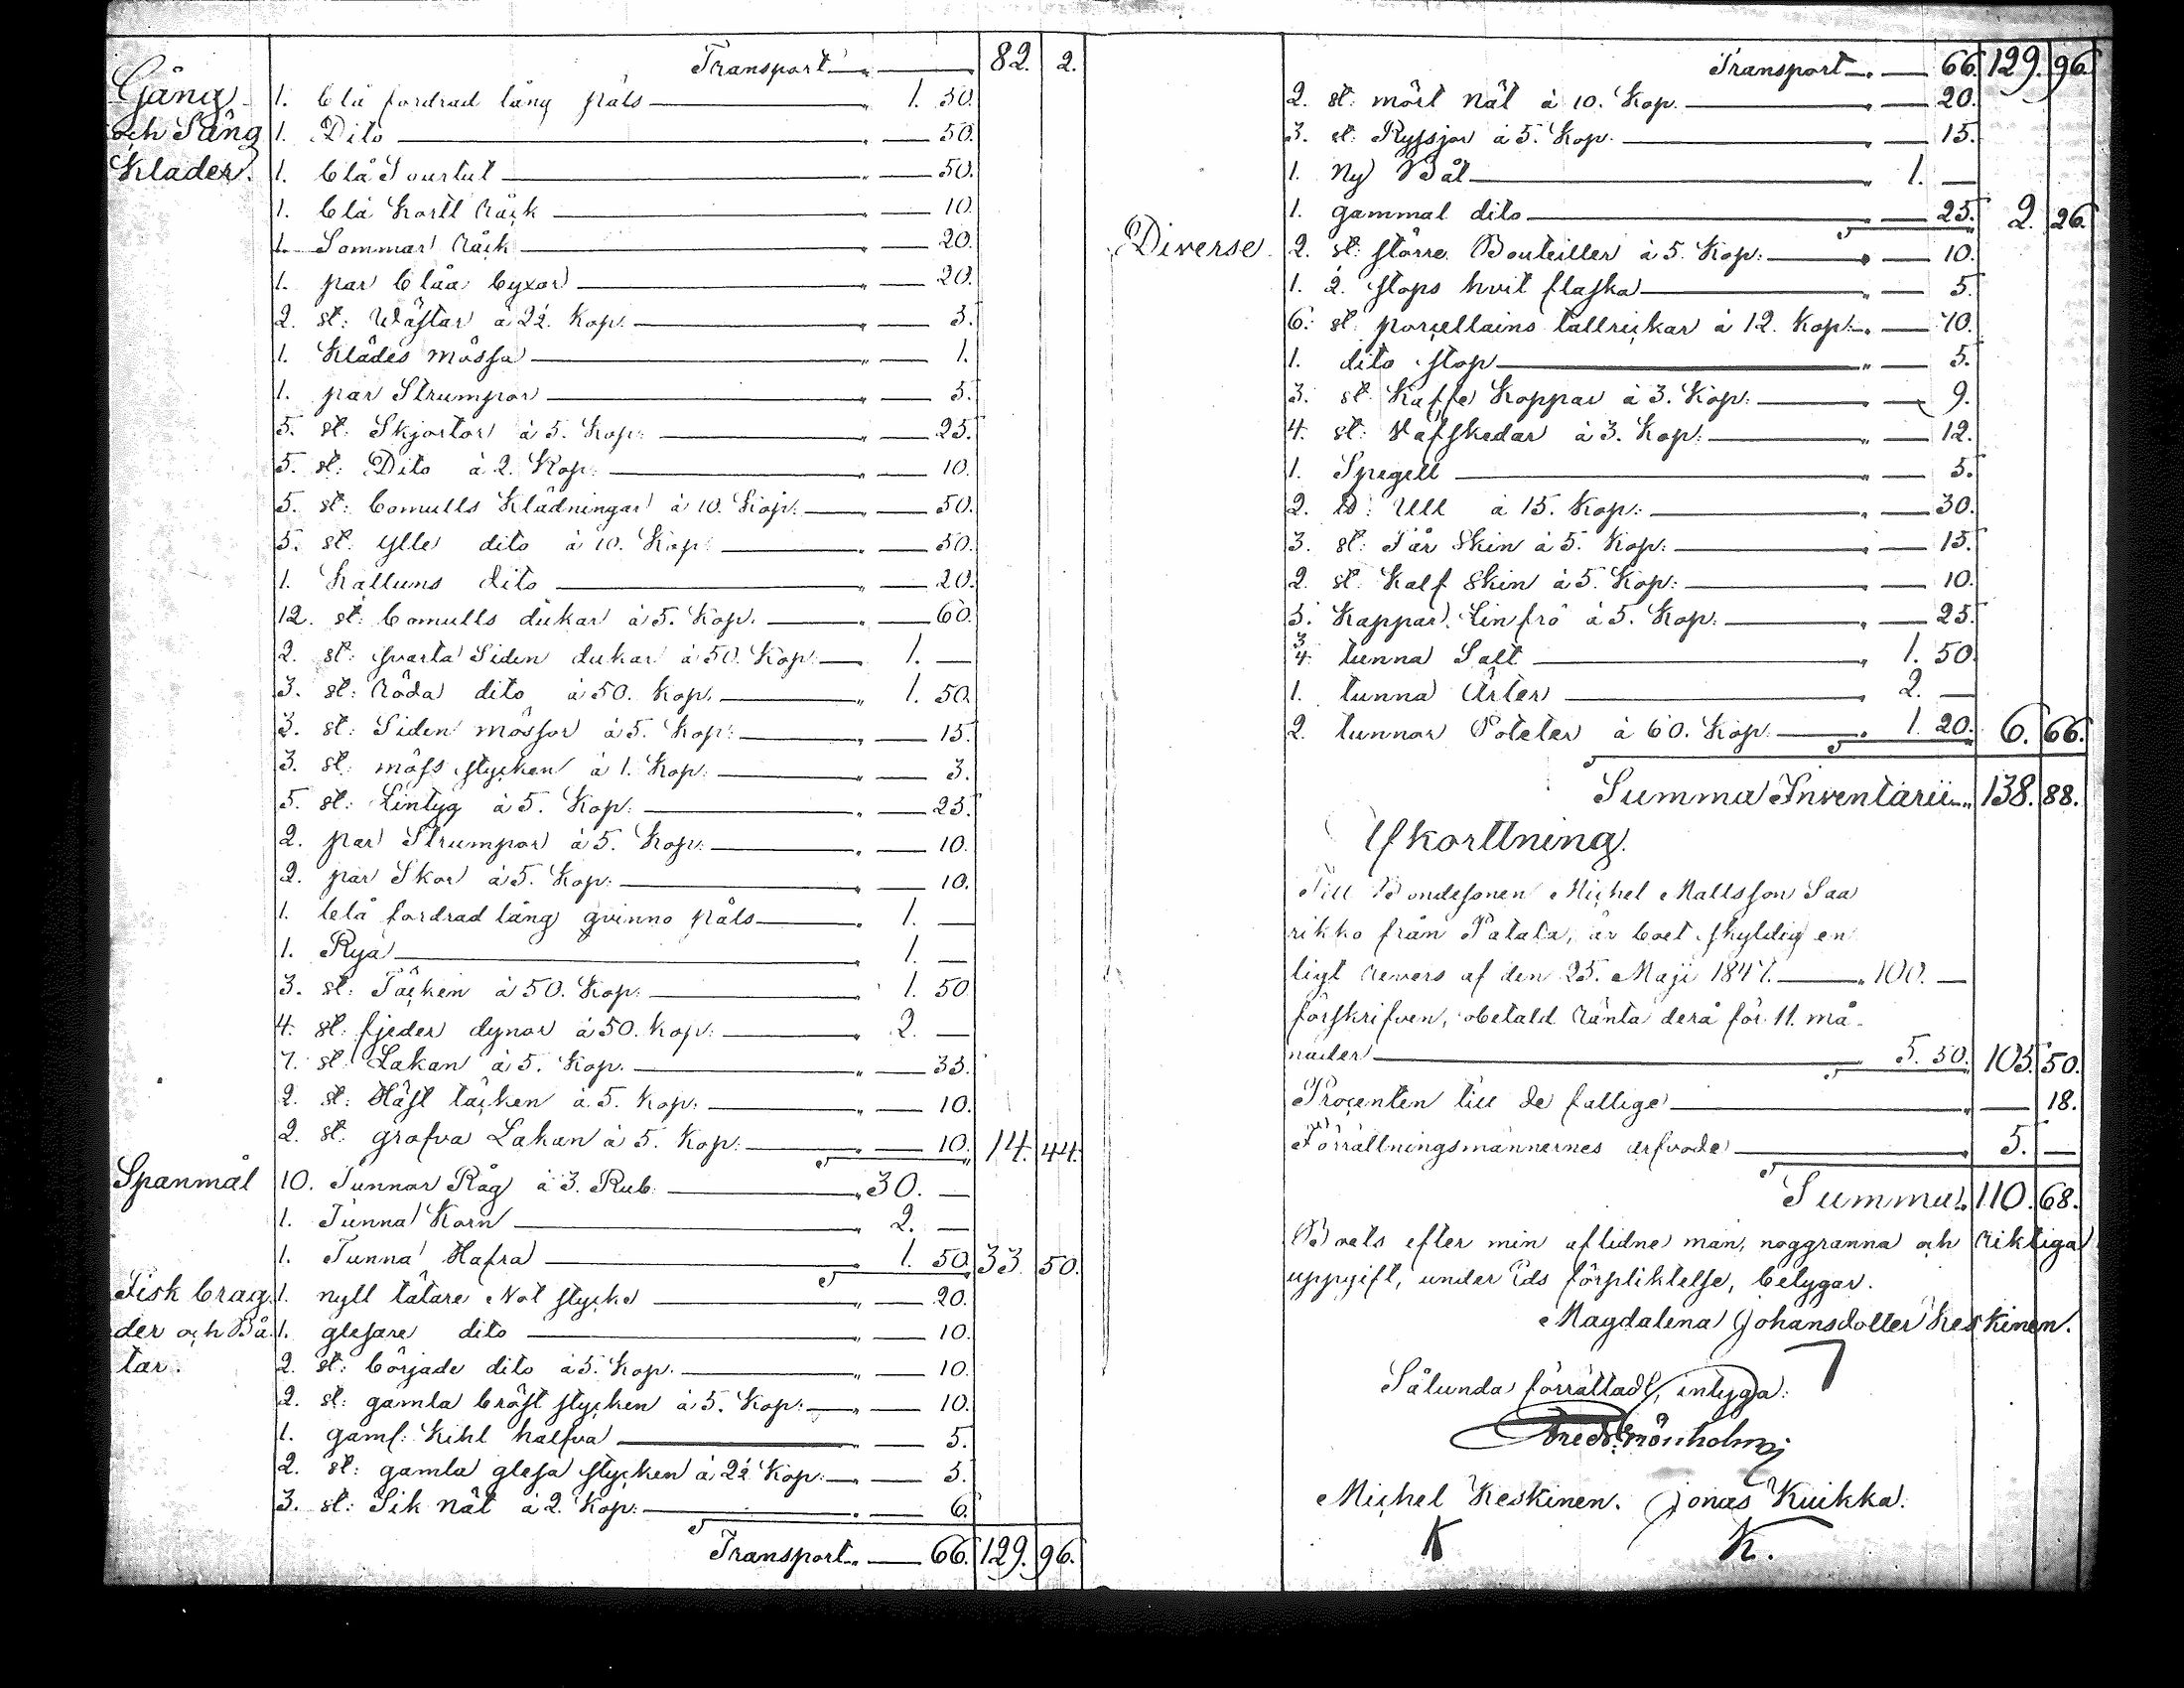 Transport 82. 2.
Gång 1. blå fordrad lång påls 1. 50.
och Säng 1. Dito 50.
Kläder. 1. blå Sourtut 50.
1. blå kortt råck 10.
1. Sommar råck 20.
1. par blåa byxor 20.
2. st: Wästar à 2½ Kop: 5.
1. Klädes mössa 1.
1. par Strumpor 5.
5. st: Skjortor à 5. Kop: 25.
5. st: Dito à 2. Kop: 10.
5. st: bomulls Klädningar à 10. Kop: 50.
5. st: ylle dito à 10. Kop: 50.
1. Kattuns dito 20.
12. st: bomulls dukar à 5. Kop. 60.
2. st: svarta Siden dukar à 50. Kop: 1. —
3. st: röda dito à 50. Kop. 1. 50.
3. st: Siden mössor à 5. Kop: 15.
3. st: möss stycken à 1. Kop: 3.
5. st: Lintyg à 5. Kop: 25.
2. par Strumpor à 5. Kop: 10.
2. par Skor à 5. Kop: 10.
1. blå fordrad lång qvinno påls 1. —
1. Rya 1. —
3. st: Täcken à 50. Kop: 1. 50
4. st: fjeder dynor à 50. Kop: 2. —
7. st: Lakan à 5. Kop. 35.
2. st: Häst täcken à 5. Kop: 10.
2. st: grofva Lakan à 5. Kop: 10. 14. 44.
Spanmål 10. Tunnor Råg à 3. Rub: 30. —
1. Tunna Korn 2. —
1. Tunna Hafra 1. 50. 33. 50.
Fisk brag 1. nytt tätare Not stycke 20.
der och Bå 1. glesare dito 10.
tar. 2. st: började dito à 5. Kop. 10.
2. st: gamla bröst stycken à 5. Kop: 10.
1. gam: Kihl halfva 5.
2. st: gamla glesa stycken à 2½ Kop: 5.
3. st: Sik nät à 2. Kop: 6.
Transport 66. 129. 96.
Transport 66. 129. 96.
2. st: mört nät à 10. Kop. 20.
3. st: Ryssjor à 5. Kop. 15.
1. Ny Båt 1. —
1. gammal dito 25. 2. 26.
Diverse. 2. st: större Bouteiller à 5. Kop: 10.
1. 2. stops hvit flaska 5.
6. st: porcellains tallrickar à 12. Kop: 70.
1. dito stop 5.
3. st: Kaffe Koppar à 3. Kop: 9.
4. st:Väfskedar à 3. Kop: 12.
1. Spegell 5.
2. ℔: Ull à 15. Kop: 30.
3. st: Får Skin à 5. Kop: 15.
2. st: Kalf Skin à 5. Kop: 10.
5. Kappar Linfrö à 5. Kop: 25.
¾ tunna Salt 1. 50.
1. tunna Ärter 2. —
2. tunnor Poteter à 60. Kop. 1. 20. 6. 66.
Summa Inventarii 138. 88.
Afkorttning.
Till Bondesonen Michel Mattsson Saa
rikko från Patala, är boet skyldig en
ligt revers af den 25. Maji 1847. 100. —
förskrifven, obetald ränta derå för 11. må-
nader 5. 50. 105. 50.
Procenten till de fattige — 18.
Förrättningsmännernes arfvode 5. —
Summa 110. 68.
Boets efter min aflidne man, noggranna och riktiga
uppgift, under Eds förpliktelse, betygar.
Magdalena Johansdotter Keskinen.
Sålunda förrättadt, intyga:
Michel Keskinen. Jonas Kuikka.
K K.